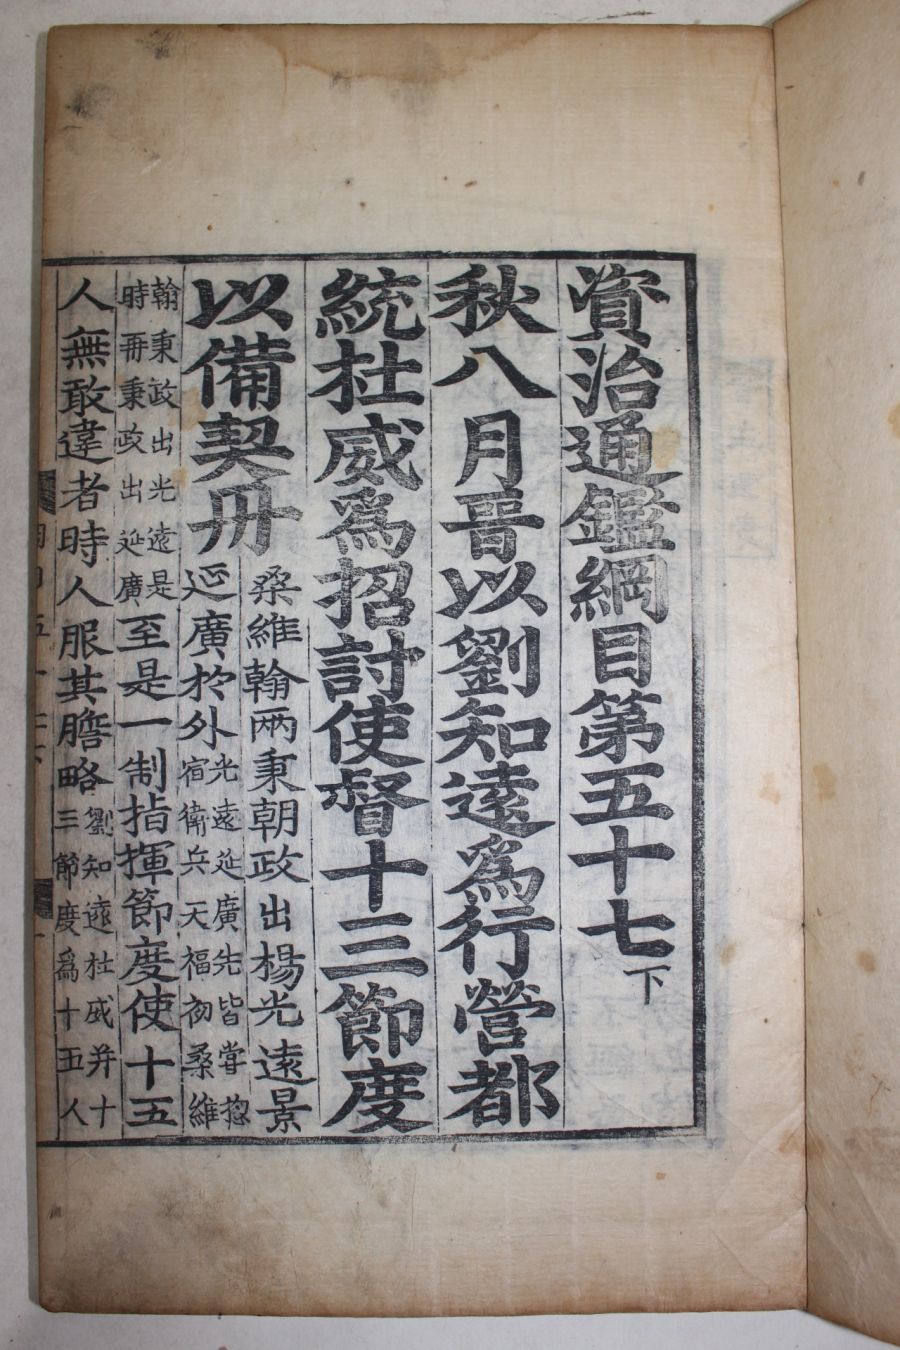 資治通鑑綱目第五十七下
秋八月晉以劉知遠爲行營都
統杜威爲招討使督十三節度
以備契丹
桑維翰兩秉朝政出楊光遠景
延廣於外
光遠延廣先皆掌揔
宿衛兵天福初桑維
翰秉政出光遠是
時再秉政出延廣
至是一制指揮節度使十五
人無敢違者時人服其膽略
劉知遠杜威并十
三節度爲十五人